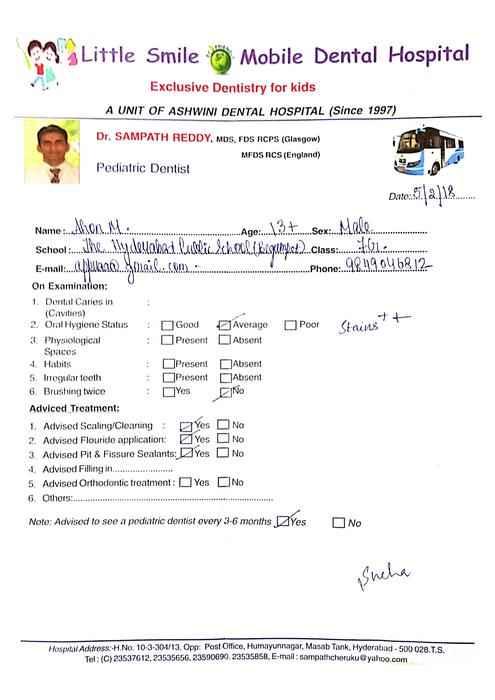 Little Smile Mobile Dental Hospital
Exclusive Dentistry for kids
A UNIT OF ASHWINI DENTAL HOSPITAL (Since 1997)
Dr. SAMPATH REDDY, MDS, FDS RCPS (Glasgow)
MFDS RCS (England)
Pediatric Dentist
Date: 5/2/18
Name: M. Age: 13+ Sex: Male
School: The Hyderabad Public School (Begumpet) Class: 7G1.
E-mail: gmail.com. Phone: 9849046812
On Examination:
1. Dental Caries in :
(Cavities)
2. Oral Hygiene Status : Good Average Poor Stains ++
3. Physiological : Present Absent
Spaces
4. Habits : Present Absent
5. Irregular teeth : Present Absent
6. Brushing twice : Yes No
Adviced Treatment:
1. Advised Scaling/Cleaning : Yes No
2. Advised Flouride application: Yes No
3. Advised Pit & Fissure Sealants: Yes No
4. Advised Filling in....................
5. Advised Orthodontic treatment : Yes No
6. Others:..................................................................
Note: Advised to see a pediatric dentist every 3-6 months Yes No
Sneha
Hospital Address:-H.No. 10-3-304/13, Opp: Post Office, Humayunnagar, Masab Tank, Hyderabad - 500 028.T.S.
Tel : (C) 23537612, 23535656, 23590690. 23535858, E-mail : sampathcheruku@yahoo.com